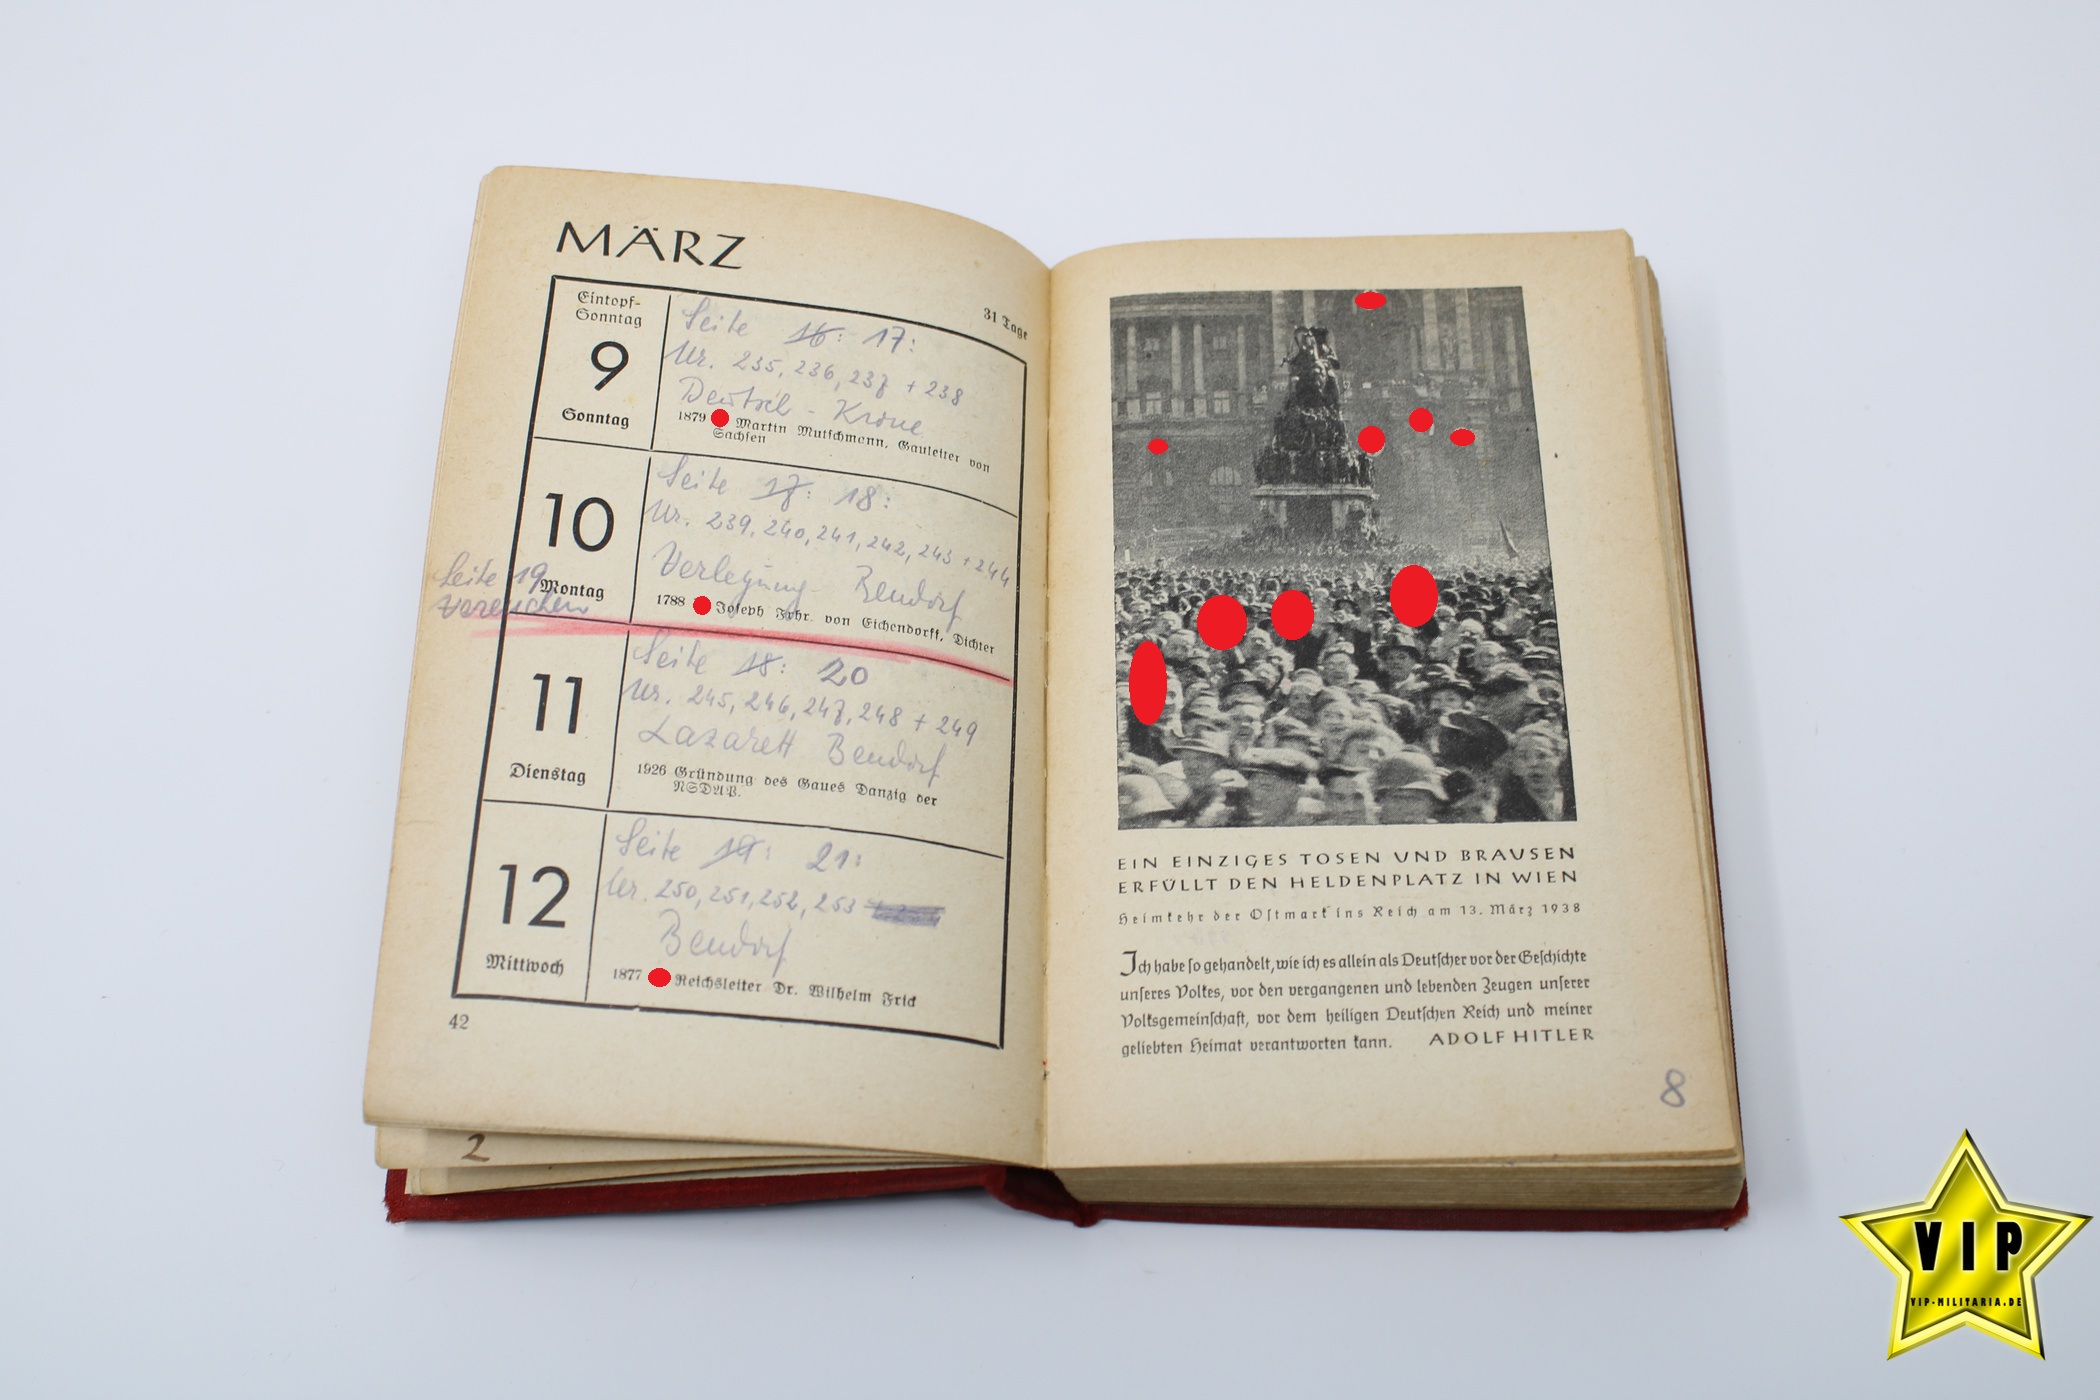 MÄRZ
31 Tage
Eintopf-
Sonntag
9
Sonntag
Seite 16: 17:
Nr. 235, 236, 237 + 238
Deutsch - Krone
1879 Martin Mutschmann, Gauleiter von
Sachsen
10
Montag
Seite 17: 18:
Nr. 239, 240, 241, 242, 243 + 244
Verlegung Bendorf
1788 Joseph Frhr. von Eichendorff, Dichter
Seite 19
11
Dienstag
Seite 18: 20
Nr. 245, 246, 247, 248 + 249
Lazarett Bendorf
1926 Gründung des Gaues Danzig der
NSDAP.
12
Mittwoch
Seite 19: 21:
Nr. 250, 251, 252, 253
Bendorf
1877 Reichsleiter Dr. Wilhelm Frick
42
2
EIN EINZIGES TOSEN UND BRAUSEN
ERFÜLLT DEN HELDENPLATZ IN WIEN
Heimkehr der Ostmark ins Reich am 13. März 1938
Ich habe so gehandelt, wie ich es allein als Deutscher vor der Geschichte
unseres Volkes, vor den vergangenen und lebenden Zeugen unserer
Volksgemeinschaft, vor dem heiligen Deutschen Reich und meiner
geliebten Heimat verantworten kann. ADOLF HITLER
8
VIP
VIP-MILITARIA.DE